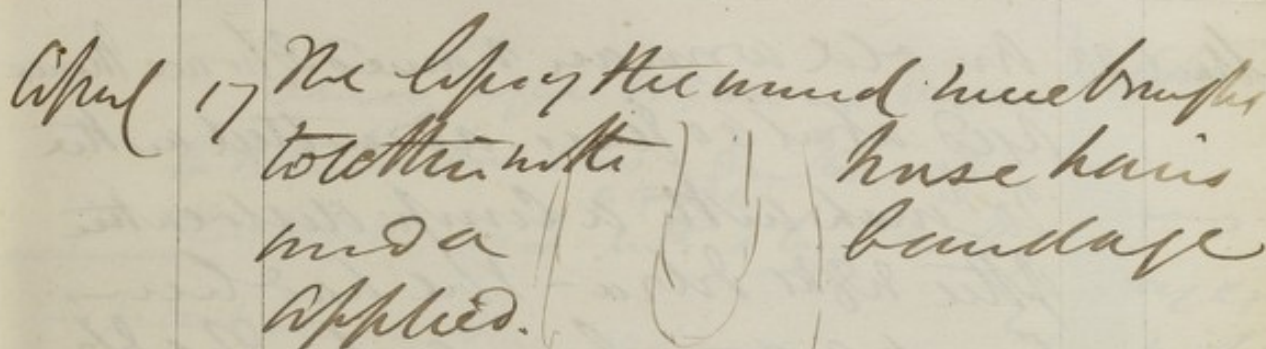 April 17 The lips of the wound were brought
together with horse hairs
and a bandage
applied.